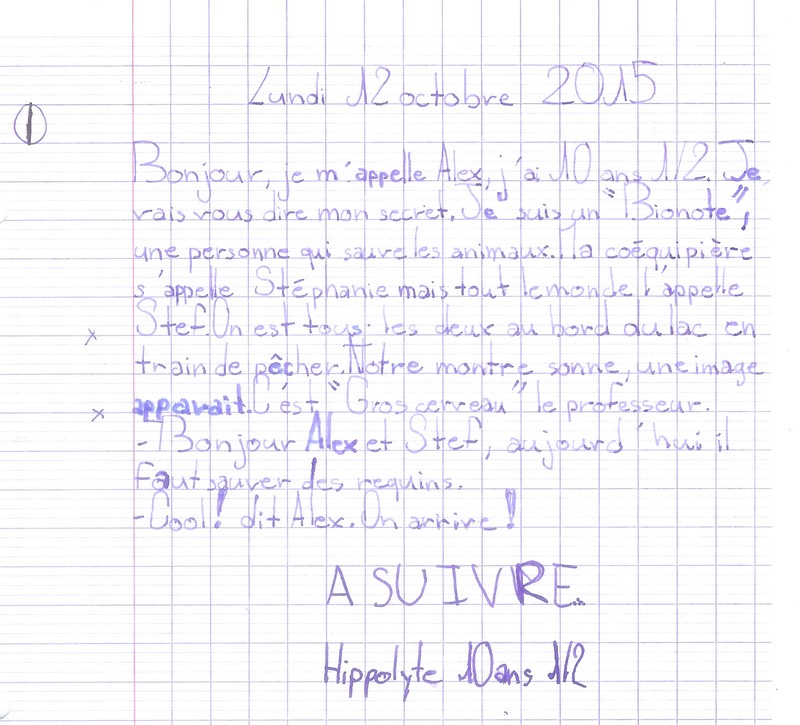 Lundi 12 octobre 2015
1
Bonjour, je m'appelle Alex, j'ai 10 ans 1/2. Je
vais vous dire mon secret. Je suis un "Bionote",
une personne qui sauve les animaux. Ma coéquipière
s'appelle Stéphanie mais tout le monde l'appelle
x Stef. On est tous les deux au bord du lac en
train de pêcher. Notre montre sonne, une image
x apparait. C'est "Gros cerveau" le professeur.
- Bonjour Alex et Stef, aujourd'hui il
faut sauver des requins.
- Cool! dit Alex. On arrive!
A SUIVRE...
Hippolyte 10 ans 1/2